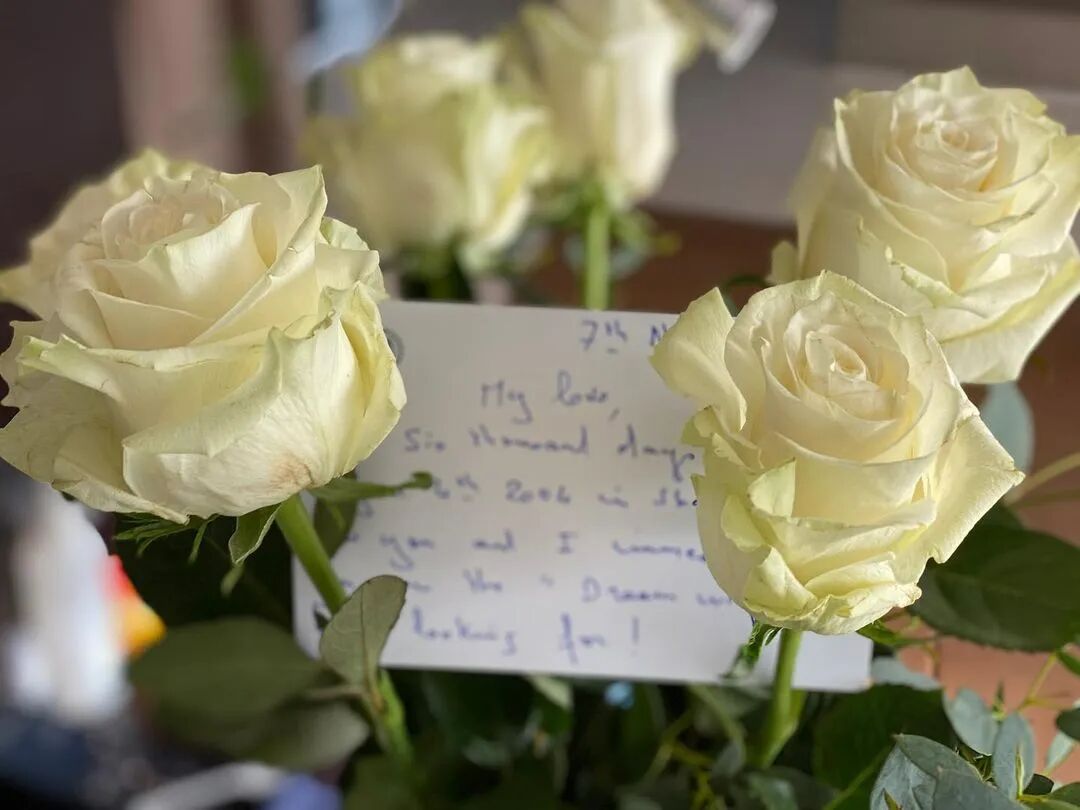 7th N
My love,
Six thousand day
th 2004 in
you and I
the " Dream
looking for!